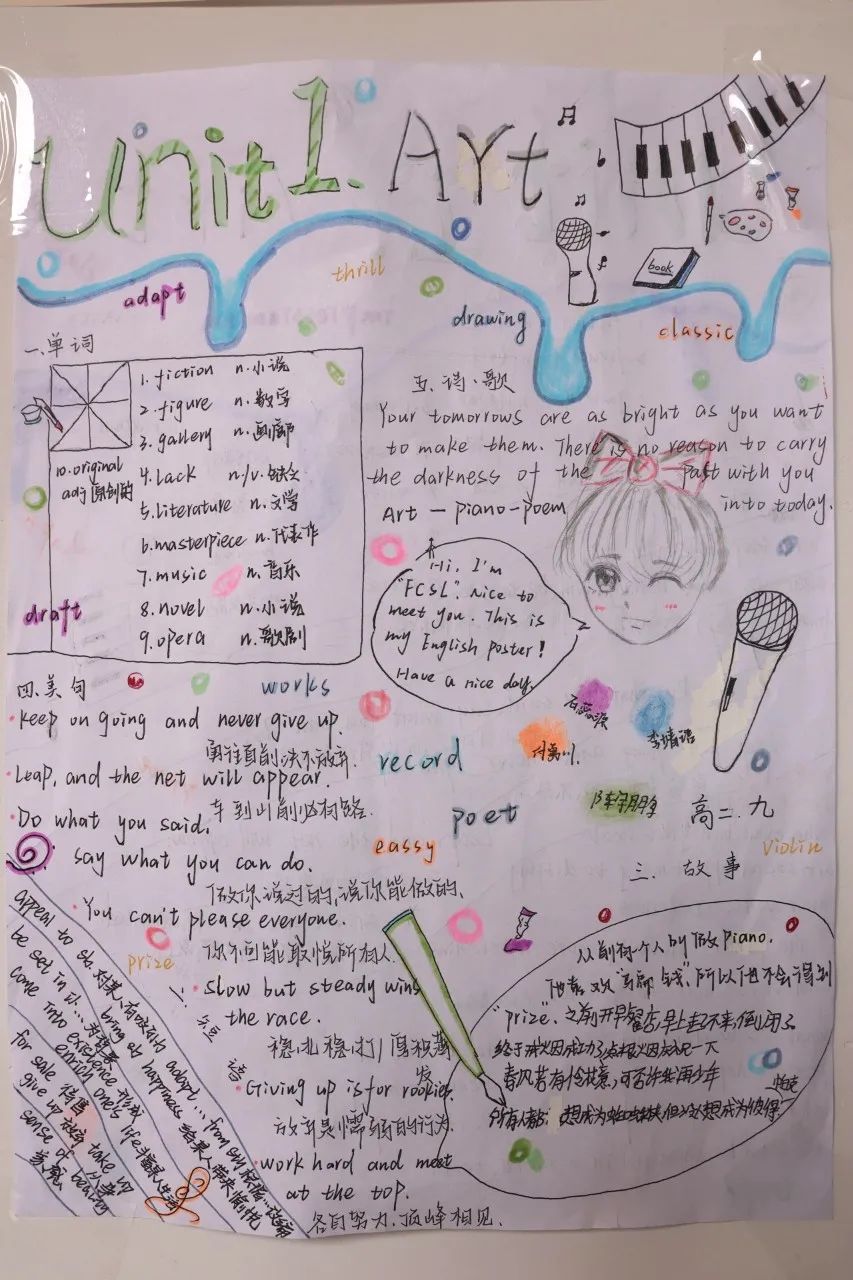 Unit 1. Art
book
adapt
thrill
drawing
classic
一.单词
1. fiction n.小说
2. figure n.数字
3. gallery n.画廊
4. Lack n./v.缺乏
5. Literature n.文学
6. masterpiece n.代表作
7. music n.音乐
8. novel n.小说
9. opera n.歌剧
10. original
adj 原创的
draft
五.诗·歌
Your tomorrows are as bright as you want
to make them. There is no reason to carry
the darkness of the past with you
into today.
Art — piano - poem
Hi, I'm
"FCSL". Nice to
meet you. This is
my English poster!
Have a nice day.
四.美句
works
keep on going and never give up.
勇往直前决不放弃.
Leap, and the net will appear.
车到山前必有路.
Do what you said,
say what you can do.
做你说过的,说你能做的.
You can't please everyone.
你不可能取悦所有人.
slow but steady wins
the race.
稳扎稳打厚积薄
发
Giving up is for rookies.
放弃是懦弱的行为.
work hard and meet
at the top.
各自努力.顶峰相见.
record
poet
eassy
prize
音乐
高二.九
violin
三.故事
从前有一个人 by 做 piano.
他喜欢 钱,所以他不会得到
"prize". 之前开早餐店,早上起不来,倒闭了
终于戒烟成功了点根烟庆祝一下
春风若有怜花意,可否许我再少年
所有人都 想成为 但 想成为彼得
appeal to sb. 对某人有吸引力 adapt... from 改编
be set in 以...为背景 bring sb happiness 给某人带来愉悦
come into existence 形成 enrich one's life 丰富某人生活
for sale 待售 take up 从事
give up 放弃 sense of beauty
美感